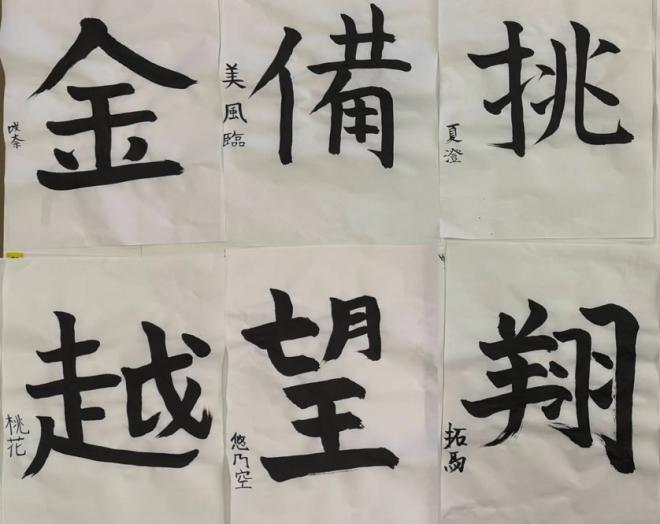 金
咲奈
備
美風臨
挑
夏澄
越
桃花
望
悠乃空
翔
拓馬